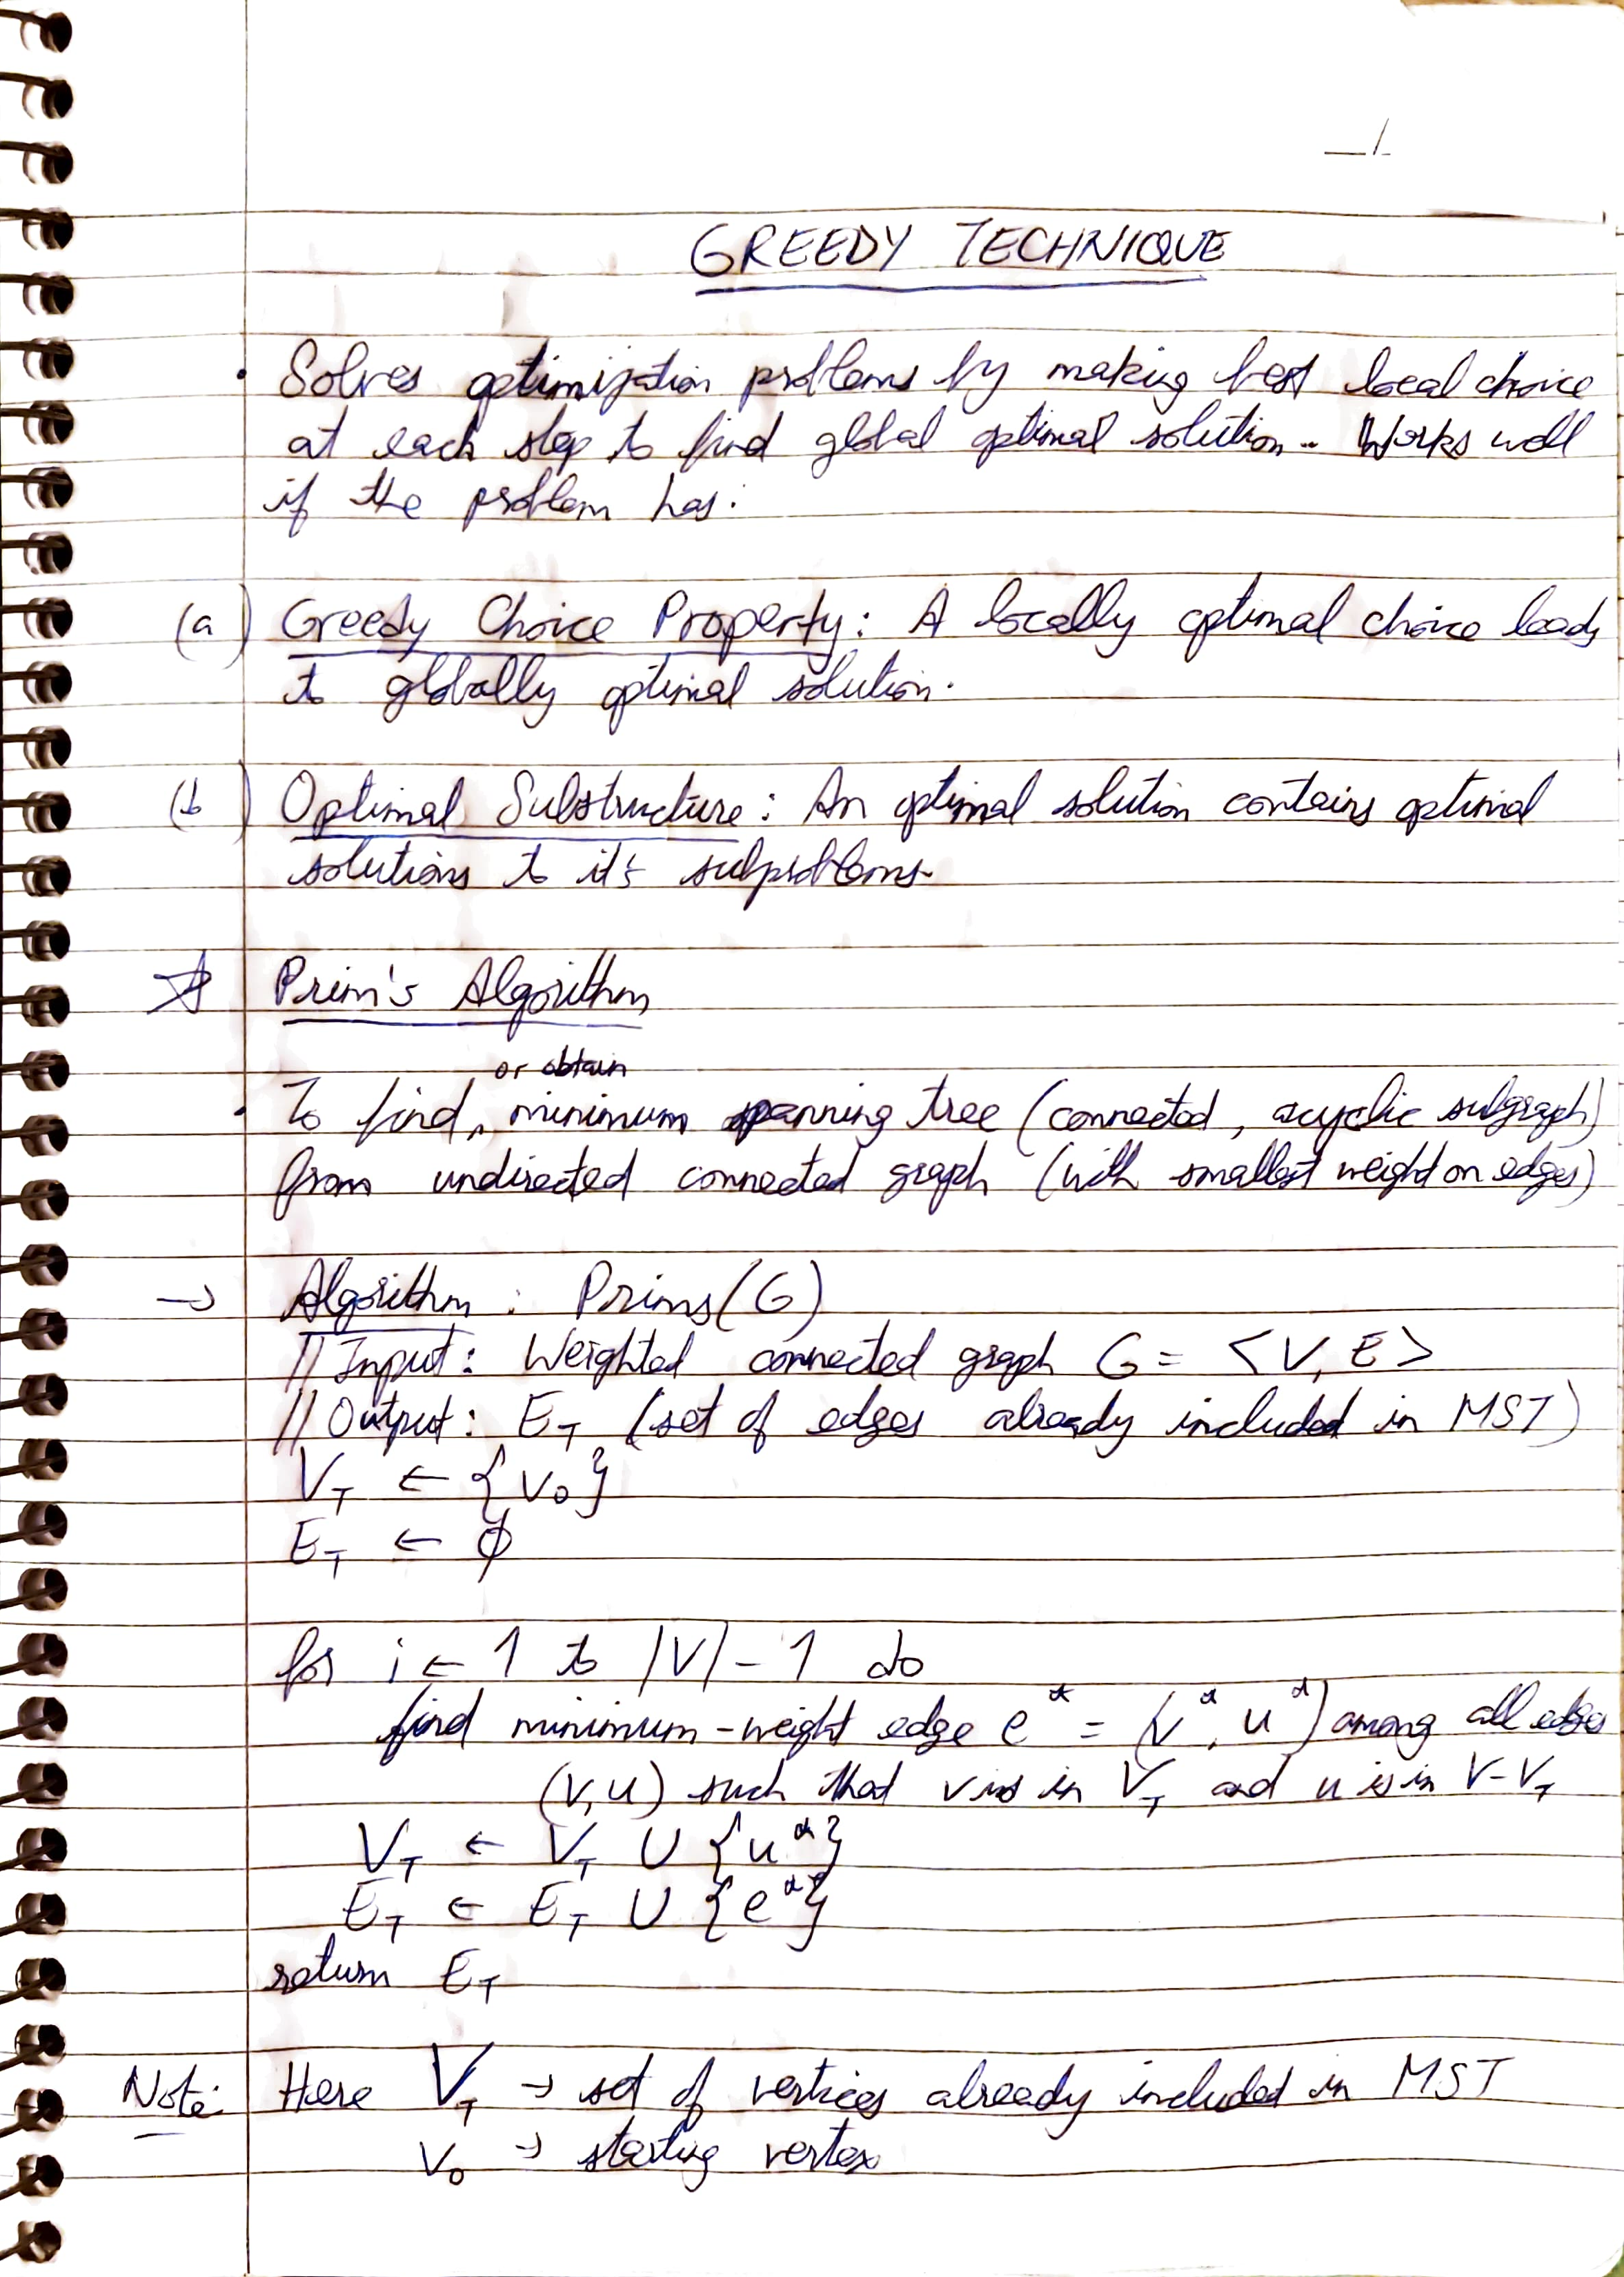 GREEDY TECHNIQUE
• Solves optimization problems by making best local choice
at each step to find global optimal solution.. Works well
if the problem has:
(a) Greedy Choice Property: A locally optimal choice leads
to globally optimal solution.
(b) Optimal Substructure: An optimal solution contains optimal
solutions to it's subproblems.
☆ Prim's Algorithm
or obtain
• To find ^ minimum spanning tree (connected, acyclic subgraph)
from undirected connected graph (with smallest weight on edges)
→ Algorithm: Prims(G)
// Input: Weighted connected graph G = <V, E>
// Output: E_T (set of edges already included in MST)
V_T ← {v₀}
E_T ← ϕ
for i ← 1 to |V| - 1 do
find minimum-weight edge e* = (v*, u*) among all edges
(v,u) such that v is in V_T and u is in V-V_T
V_T ← V_T ∪ {u*}
E_T ← E_T ∪ {e*}
return E_T
Note: Here V_T → set of vertices already included in MST
v₀ → starting vertex